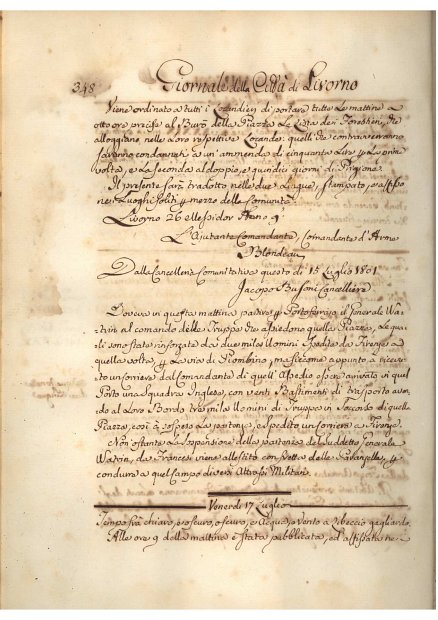 348 Giornale della Città di Livorno
Viene ordinato a tutti i Locandieri di portare tutte le mattine a
otto ore precise al Burò della Piazza la Lista dei Forestieri, che
alloggiano nelle loro respettive Locande: quelli che contravverranno
saranno condannati a un'ammenda di cinquanta Lire p. la prima
volta, e la seconda al doppio, e quindici giorni di Prigione.
Il presente sarà tradotto nelle due Lingue, stampato, e affisso
nei Luoghi soliti p. mezzo della Comunità
Livorno 26 Messidor Anno 9.
L'Ajutante Comandante, Comandante d'Armi
Blondeau
Dalla Cancelleria Comunitativa questo dì 15 Luglio 1801
Jacopo Busoni Cancelliere
Doveva in questa mattina partire p. Portoferrajo il Generale Wa-
trin al comando delle Truppe che assediono quella Piazza, le qua-
li sono state rinforzate da due mila Uomini spediti da Firenze a
quella volta, p. la via di Piombino, ma siccome appunto à ricevu-
to un corriere dal Comandante di quell'Assedio essere arrivata in quel
Porto una Squadra Inglese, con venti Bastimenti di trasporto aven-
do al loro Bordo tre mila Uomini di Truppe in soccorso di quella
Piazza, così à sospeso la partenza, e spedito un corriere a Firenze.
Non ostante la sospensione della partenza del suddetto Generale
Watrin, da Francesi viene allestito con fretta delle Paranzelle, p.
condurre a quel campo diversi Attrassi Militari.
Venerdì 17 Luglio
Tempo frà chiaro, e oscuro, e Acqua, e vento a Libeccio gagliardo.
Alle ore 9 della mattina è stata pubblicata, ed affissata ne